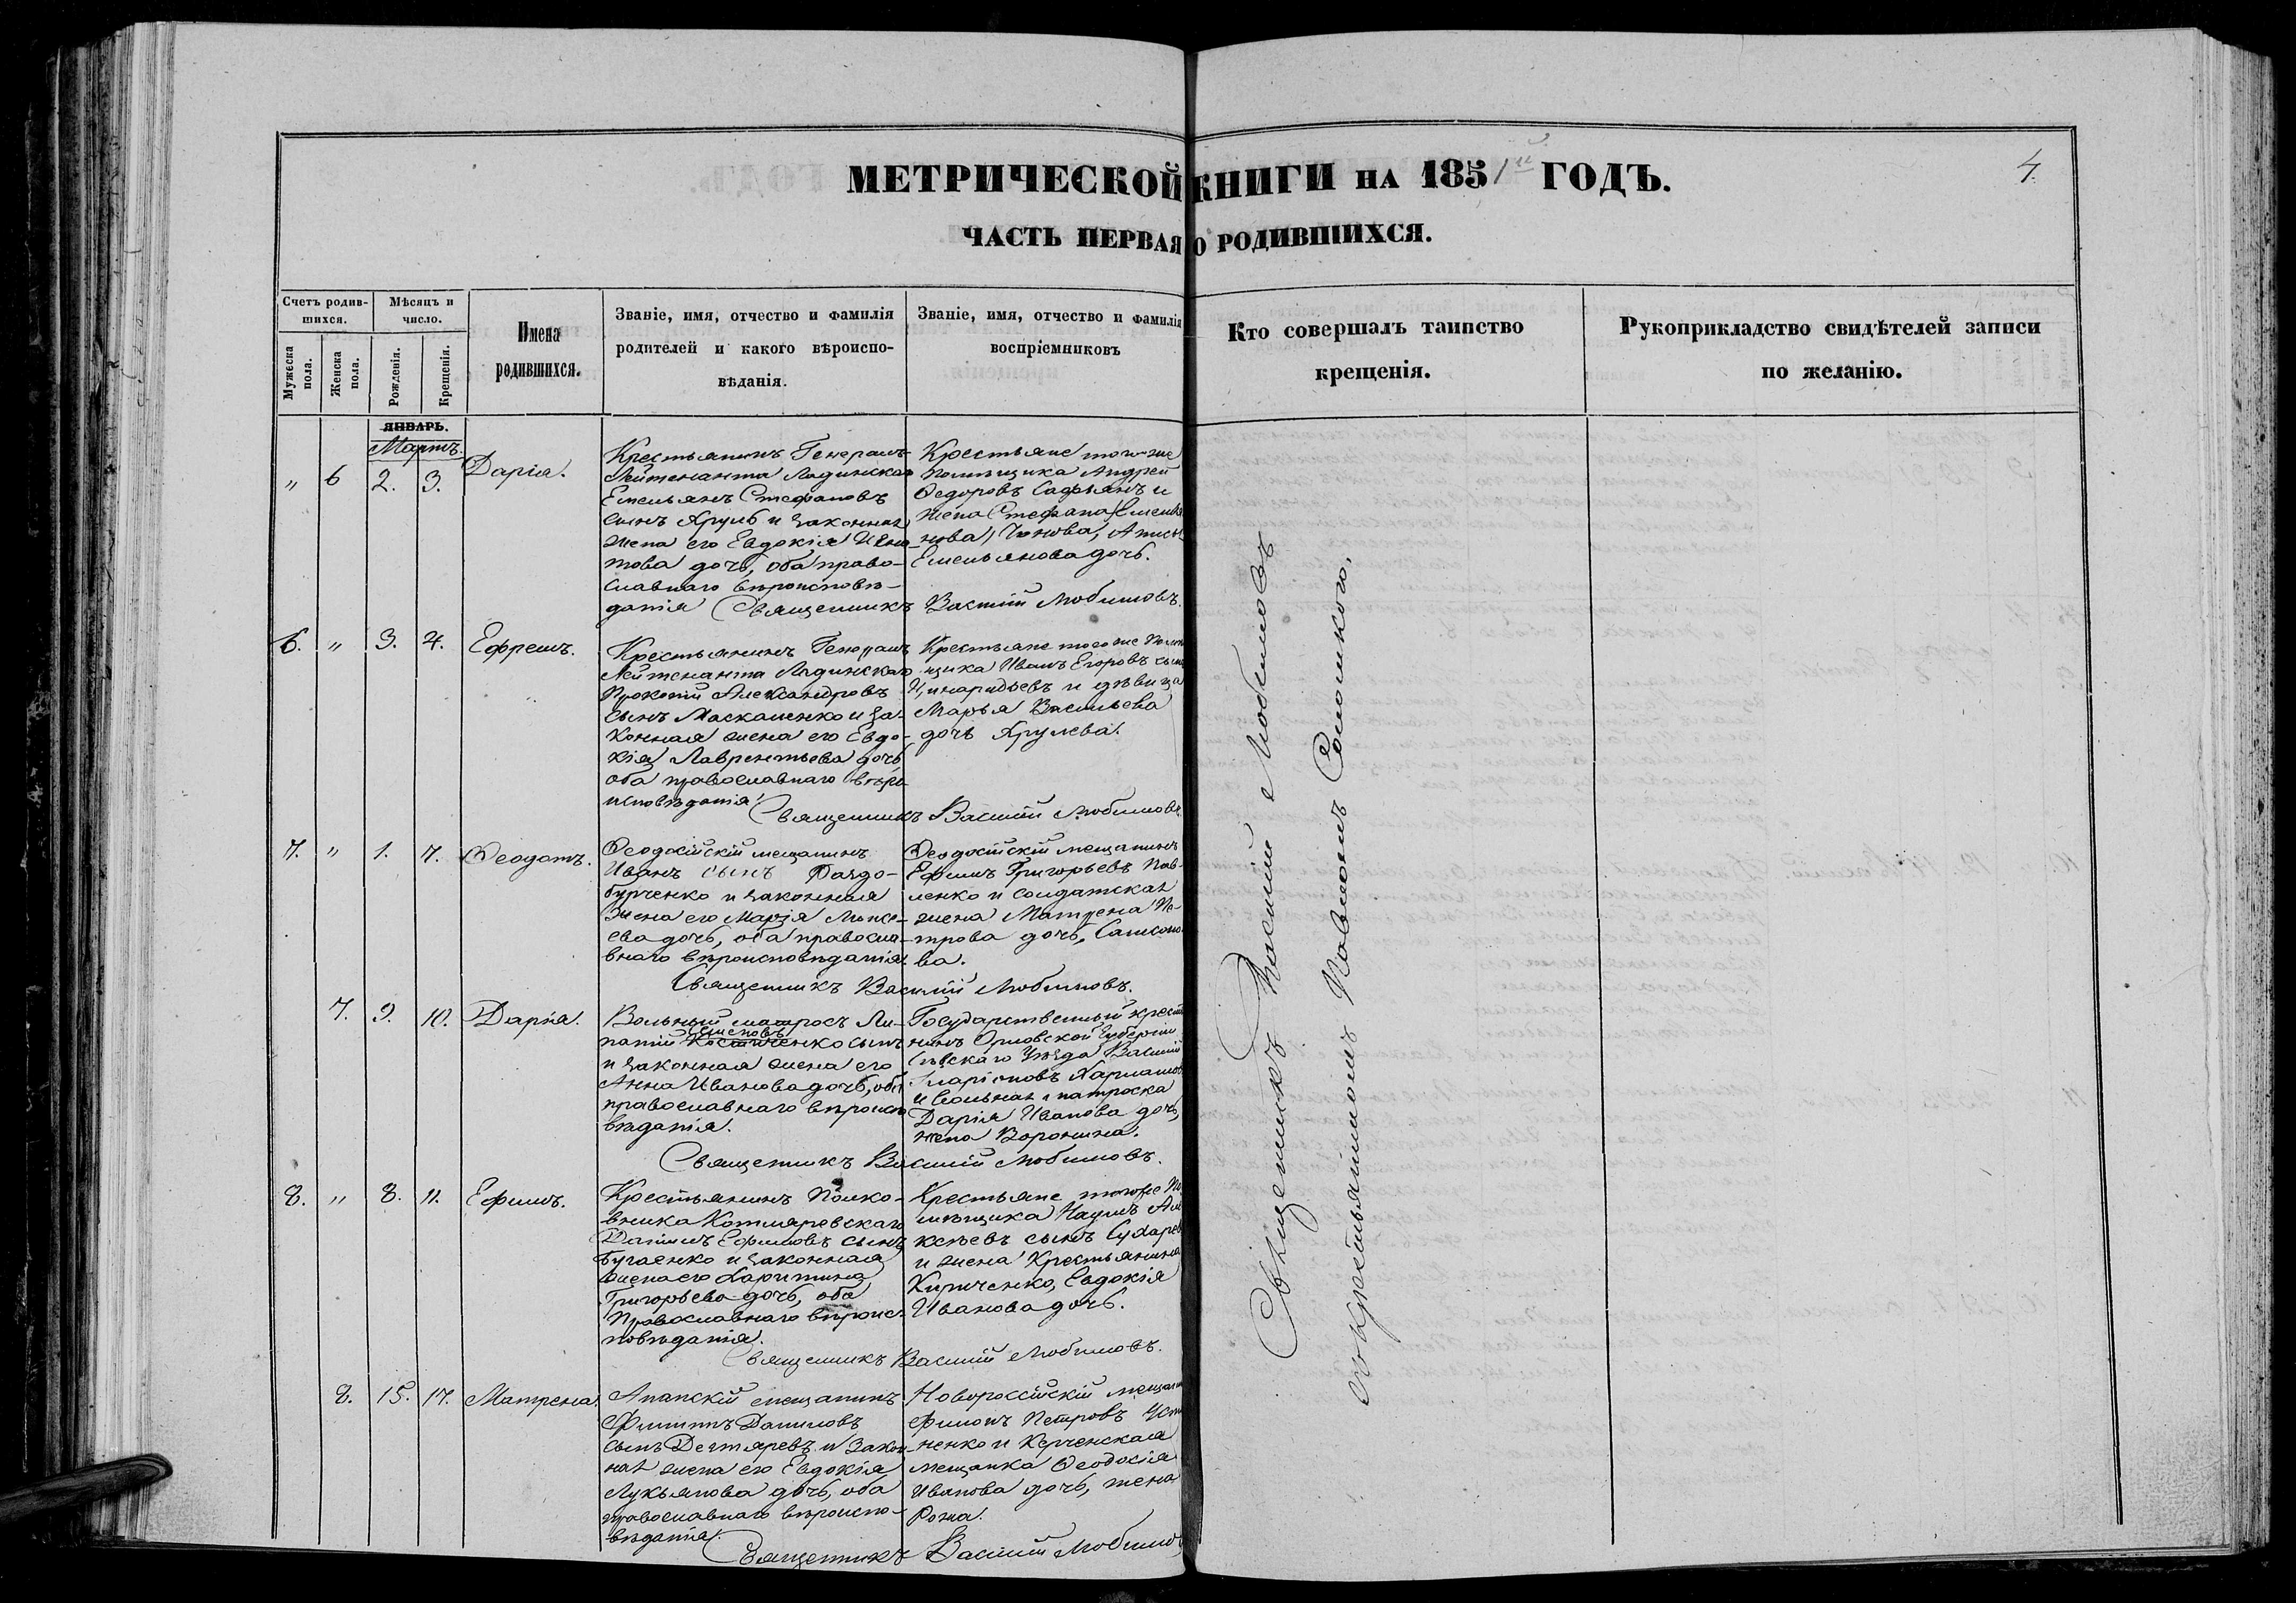 МЕТРИЧЕСКОЙ КНИГИ НА 1851й ГОДЪ.
4.
ЧАСТЬ ПЕРВАЯ О РОДИВШИХСЯ.
Счетъ родив-
шихся.
Мужеска
пола.
Женска
пола.
Мѣсяцъ и
число.
Рожденія.
Крещенія.
Имена
родившихся.
Званіе, имя, отчество и фамилія
родителей и какого вѣроиспо-
вѣданія.
Званіе, имя, отчество и фамилія
воспріемниковъ
Кто совершалъ таинство
крещенія.
Рукоприкладство свидѣтелей записи
по желанію.
ЯНВАРЬ.
Мартъ.
" 6 2. 3. Дарія.
Крестьянинъ Генералъ-
Лейтенанта Ладинскаго
Емельянъ Стефановъ
сынъ Хруль и законная
жена его Евдокія
това дочь, оба право-
славнаго вѣроисповѣ-
данія
Крестьяне того-же
помѣщика Андрей
Ѳедоровъ Сафьянъ и
жена Стефана Емелья
нова,
Емельянова дочь.
Священникъ Василій Любимовъ.
6. " 3. 4. Ефремъ.
Крестьянинъ Генералъ
Лейтенанта Ладинскаго
Прокопій Александровъ
сынъ Маскаленко и за-
конная жена его Евдо-
кія Лаврентьева дочь,
оба православнаго вѣро
исповѣданія.
Крестьяне того же Помѣ
щика Иванъ Егоровъ сынъ
и дѣвица
Марья Васильева
дочь Хрулева.
Священникъ Василій Любимовъ.
7. " 1. 7. Ѳеодотъ.
Ѳеодосійскій мещанинъ
Иванъ сынъ Раздо-
бурченко и законная
жена его Марія Моисе-
ева дочь, оба правосла-
внаго вѣроисповѣданія.
Ѳеодосійскій мещанинъ
Ефимъ Григорьевъ Пав-
ленко и солдатская
жена Матрена Пе-
трова дочь, Самсоно-
ва.
Священникъ Василій Любимовъ.
7. 9. 10. Дарія.
Вольный матросъ Ли-
Семеновъ
патій Костюченко сынъ
и законная жена его
Анна Иванова дочь, оба
православнаго вѣроиспо
вѣданія.
Государственный крестья
нинъ Орловской Губерніи
Сѣвскаго Уѣзда Василій
Иларіоновъ Харламовъ
и вольная матроска
Дарія Иванова дочь,
жена Воронина.
Священникъ Василій Любимовъ.
8. " 8. 11. Ефимъ.
Крестьянинъ Полко-
вника Котляревскаго
Даніилъ Ефимовъ сынъ
Бугаенко и законная
жена его Харитина
Григорьева дочь, оба
Православнаго вѣроис-
повѣданія.
Крестьяне тогоже По
мѣщика Наумъ Але
ксѣевъ сынъ Сухарев
и жена Крестьянина
Кириченко, Евдокія
Иванова дочь.
Священникъ Василій Любимовъ.
8. 15. 17. Матрена.
Анапскій мещанинъ
Филиппъ Даниловъ
сынъ Дегтяревъ и закон-
ная жена его Евдокія
Лукьянова дочь, оба
православнаго вѣроиспо-
вѣданія.
Новороссійскій мещани
Филонъ Петровъ Усти
ненко и Керченская
мещанка Ѳеодосія
Иванова дочь, жена
Рожа.
Священникъ Василій Любимовъ
Священникъ Василій Любимовъ
Павломъ Сокольского,